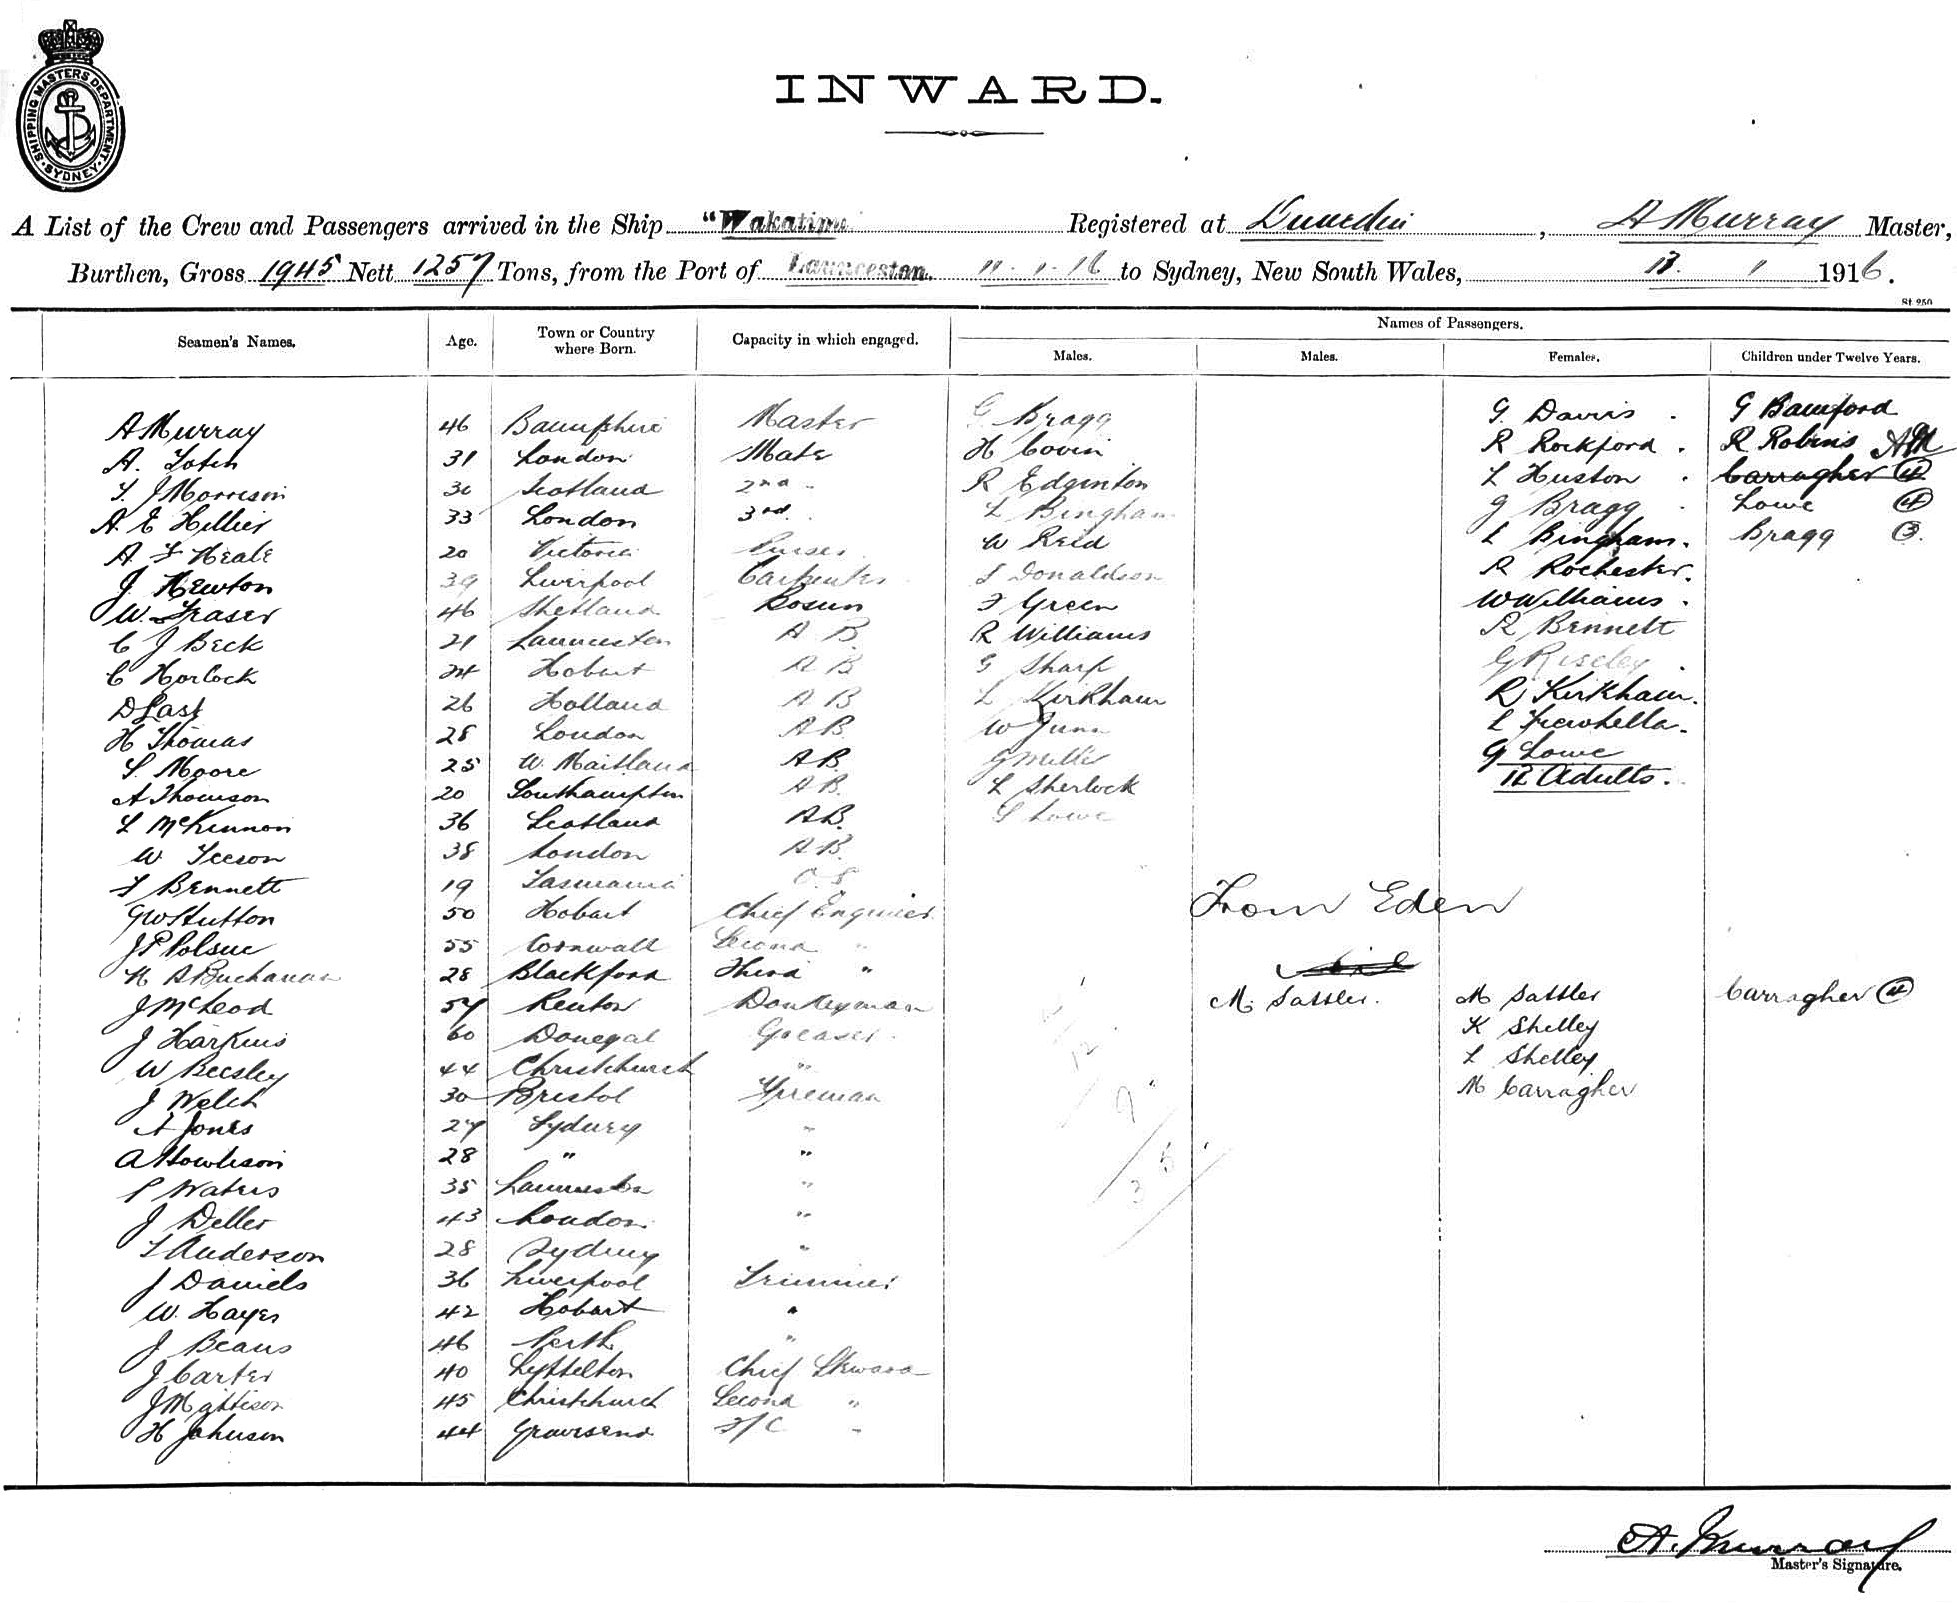 SHIPPING MASTERS DEPARTMENT
SYDNEY
INWARD.
A List of the Crew and Passengers arrived in the Ship "Wakatipu Registered at Dunedin, A Murray Master,
Burthen, Gross 1945 Nett 1257 Tons, from the Port of Launceston. 11-1-16 to Sydney, New South Wales, 1 1916.
St 250
Seamen's Names. Age. Town or Country where Born. Capacity in which engaged. Names of Passengers.
Males. Males. Females. Children under Twelve Years.
A Murray 46 Banffshire Master G Bragg G. Davis . G Bamford
A. 31 London Mate H Covin R Rockford . R Robins AM
T. J Morrison 30 Scotland 2nd " R Edginton L Huston . Carragher (4)
A. E Hillier 33 London 3rd " L Bingham G Bragg . Lowe (4)
A F Heale 20 Victoria Purser W Reid L Bingham. Bragg (3)
J Newton 39 Liverpool Carpenter S Donaldson R Rochester.
W. Fraser 46 Shetland Bosun F Green W Williams .
C J Beck 21 Launceston A B. R Williams R Bennett
C Horlock 24 Hobart A B G Sharp G Riseley .
D Last 26 Holland A B L Kirkham R Kirkham.
H Thomas 28 London A B. W Junn L Trewhella.
S. Moore 25 W. Maitland A B G Miller G Lowe
A Thomson 20 Southampton A B. L Sherlock 12 Adults.
L McKinnon 36 Scotland A B. S Lowe
W Teeson 38 London A B.
F Bennett 19 Tasmania O. S
G W Hutton 50 Hobart Chief Engineer From Eden
J P Polsue 55 Cornwall Second "
K A Buchanan 28 Blackford Third "
J McLeod 57 Renton Donkeyman M. Sattler. M Sattler Carragher (4)
J Harkins 60 Donegal Greaser K Shelley
W Beesley 44 Christchurch " L Shelley
J Welch 30 Bristol Fireman M Carragher
A Jones 27 Sydney "
A Howieson 28 " "
P Waters 35 Launceston "
J Deller 43 London "
L Anderson 28 Sydney "
J Daniels 36 Liverpool Trimmer
W. Hayes 42 Hobart "
J Beans 46 Perth "
J Carter 40 Lyttelton Chief Steward
J Mattison 45 Christchurch Second "
H Johnson 44 Gravesend F/C "
A. Murray
Master's Signature.